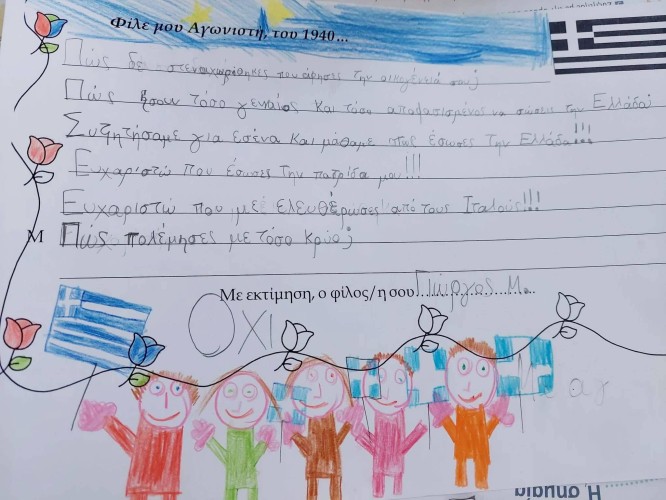 Φίλε μου Αγωνιστή, του 1940...
Πώς δεν στεναχωρήθηκες που άφησες την οικογένειά σου;
Πώς ήσουν τόσο γενναίος και τόσο αποφασισμένος να σώσεις την Ελλάδα;
Συζητήσαμε για εσένα και μάθαμε πως έσωσες την Ελλάδα!!!
Ευχαριστώ που έσωσες την πατρίδα μου!!!
Ευχαριστώ που με ελευθέρωσες από τους Ιταλούς!!!
Μ Πώς πολέμησες με τόσο κρύο;
Με εκτίμηση, ο φίλος/η σου Γιώργος Μ.
ΟΧΙ
Η σημαία